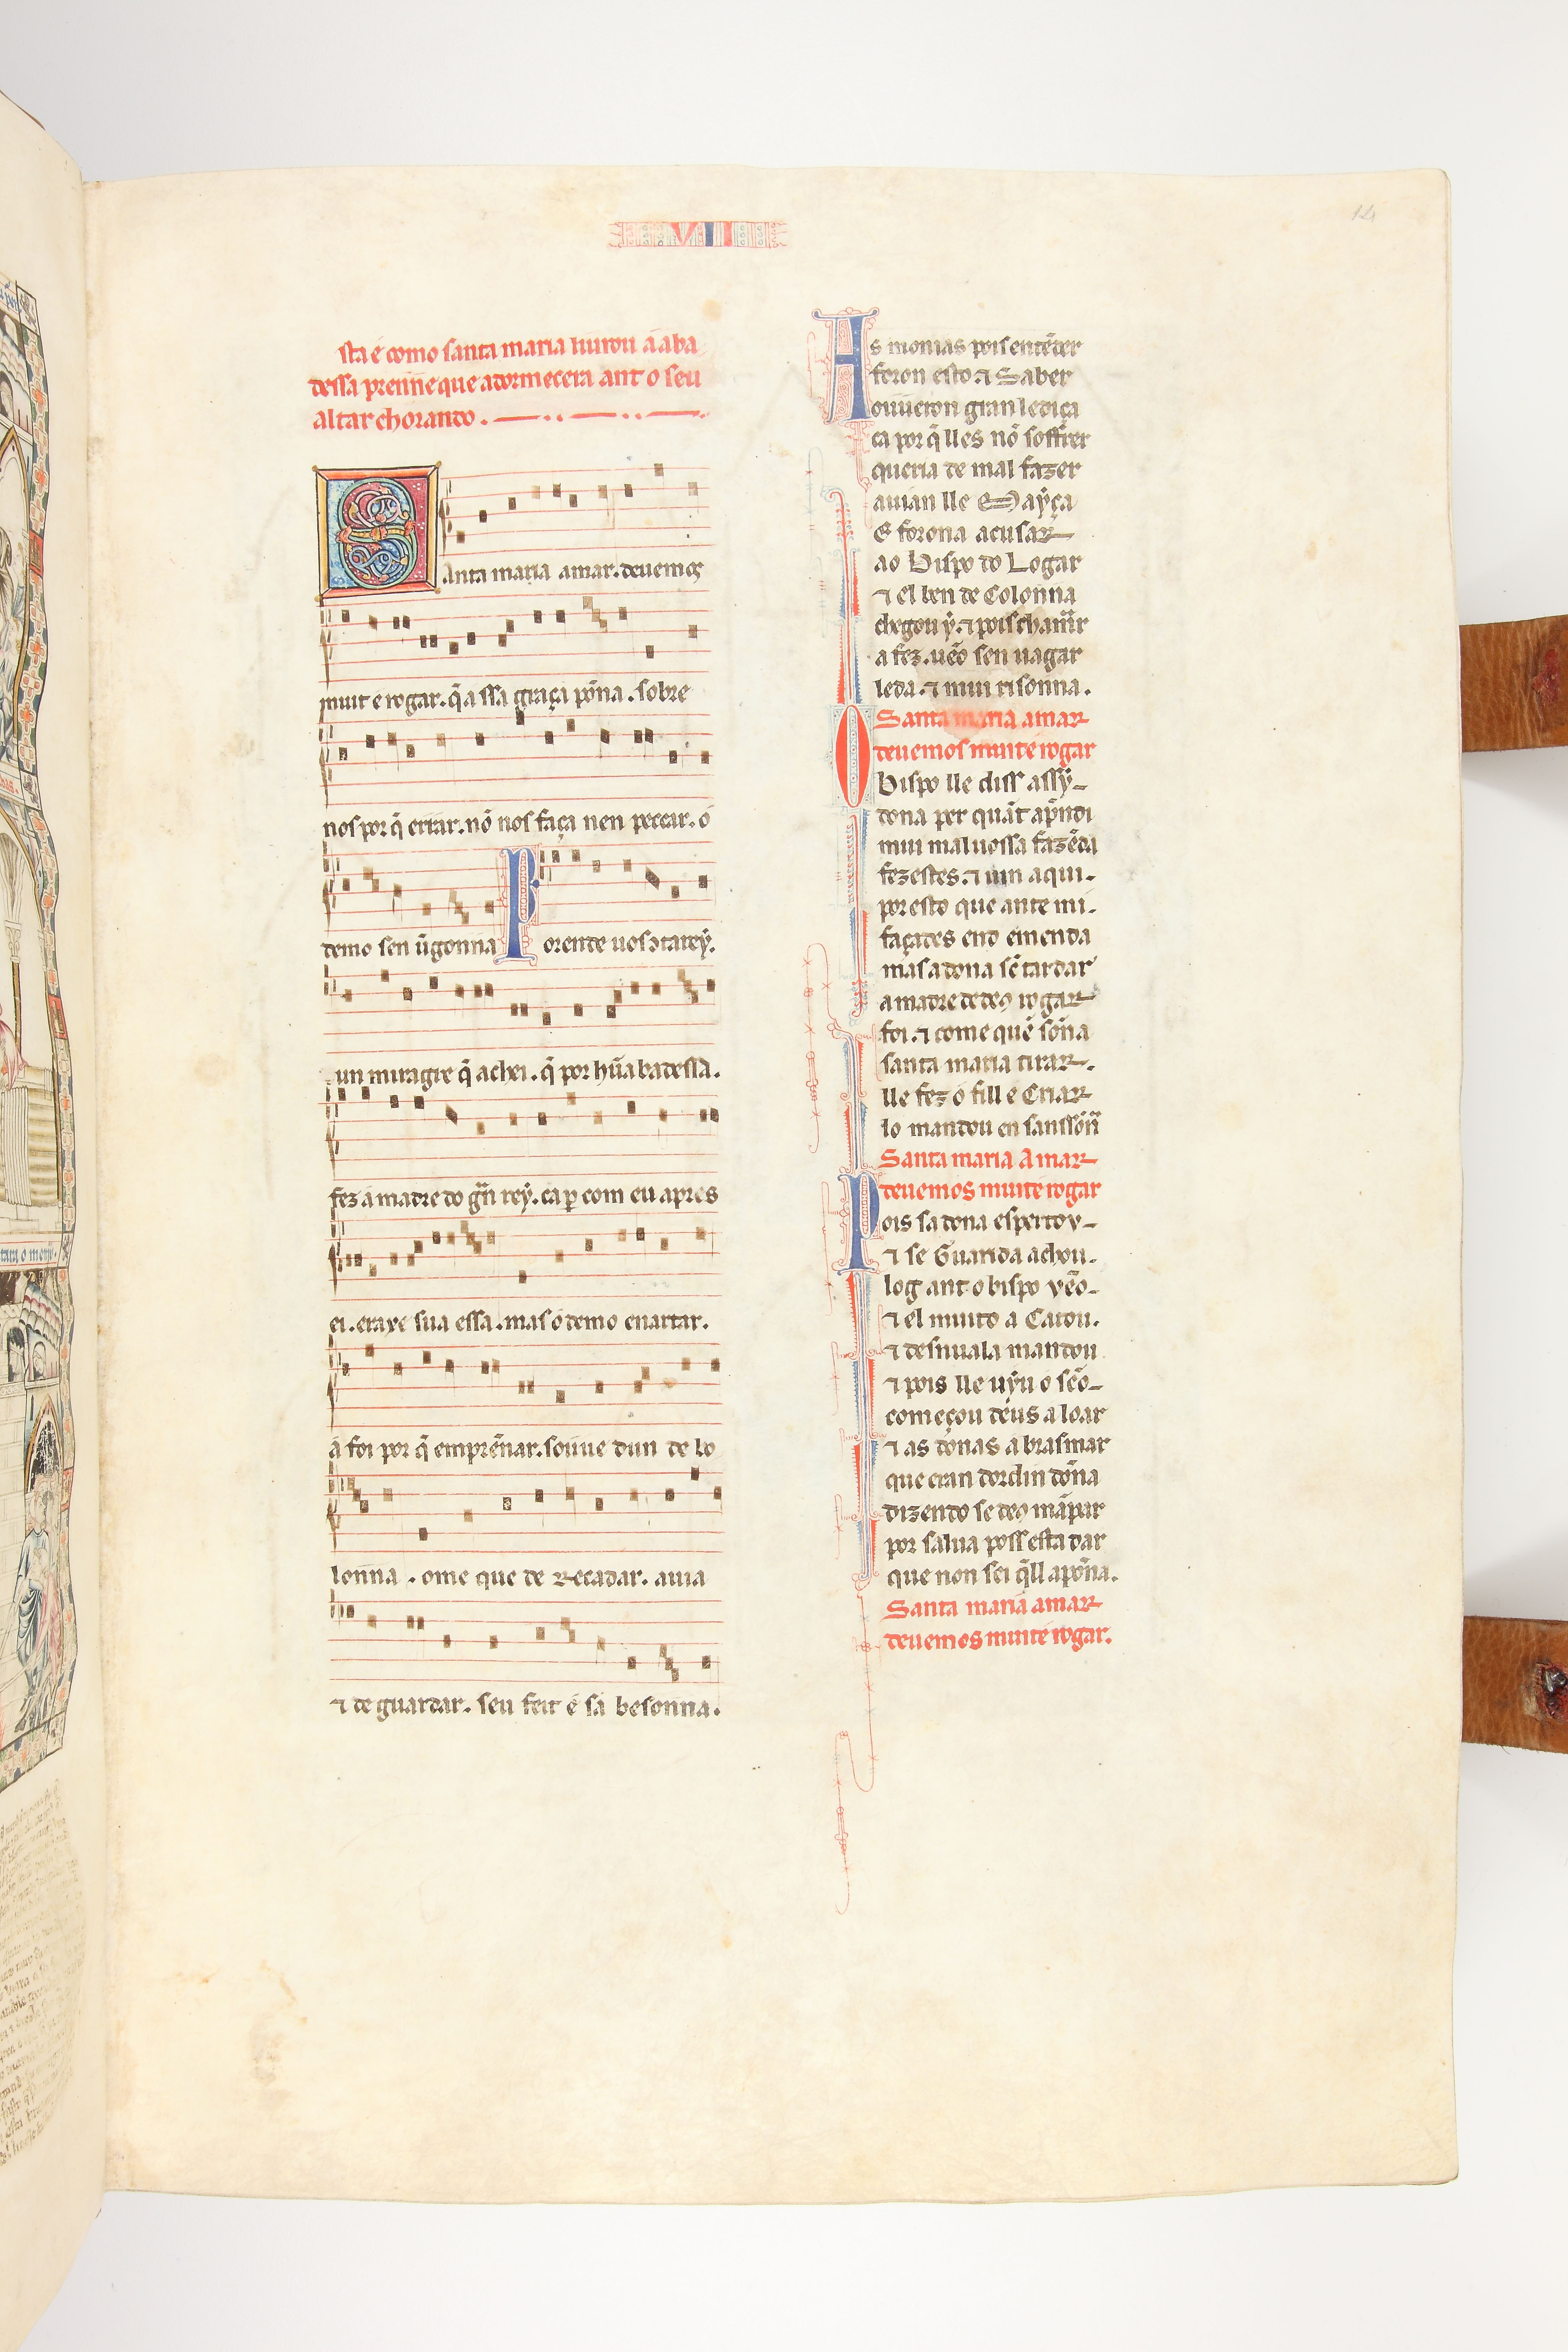 VII
14
sta é como santa maria liurou a aba
dessa prenne que adormecera ant o seu
altar chorando.
Santa maria amar. deuemos
muit e rogar. q̃ a ssa graça põna. sobre
nos por q̃ errar. nõ nos faça nen peccar. o
demo sen ũgonna Porende uos ↄtarey.
un miragre q̃ achei. q̃ por hũa badessa.
fez a madre do gñ rey. ca ꝑ com eu apres
ei. eraxe sua essa. mas o demo enartar.
a foi por q̃ emprẽnar. souue dun de lo
lonna. ome que de Recadar. auia
⁊ de guardar. seu feit e sa besonna.
As monias pois entẽder
foron esto. ⁊ Saber
ouueron gran lediça
ca por q̃ lles nõ soffrer
queria de mal fazer
auian lle Mayça
E forona acusar
ao Bispo do Logar
⁊ el ben de Colonna
chegou ẏ. ⁊ pois chamar
a fez. uẽo sen uagar
leda. ⁊ mui risonna.
Santa maria amar
deuemos muit e rogar
O Bispo lle diss assẏ
dona per quãt apñdi
mui mal uossa fazẽda
fezestes. ⁊ uin aqui.
por esto que ante mi.
façades end emenda
mas a dona sẽ tardar
a madre de deꝯ rogar
foi. ⁊ come quẽ sõna
santa maria tirar.
lle fez o fill e Criar
lo mandou en sanssõña
Santa maria Amar
deuemos muit e rogar
Pois sa dona espertov
⁊ se Guarida achou.
log ant o bispo vẽo
⁊ el muito a Catou.
⁊ desnuala mandou
⁊ pois lle uẏu o sẽo
começou deus a loar
⁊ as donas a brasmar
que eran dordin dõna
dizendo se deꝯ mãpar
por salua poss esta dar
que non sei q̃ll apõna.
Santa maria amar
deuemos muit e rogar.